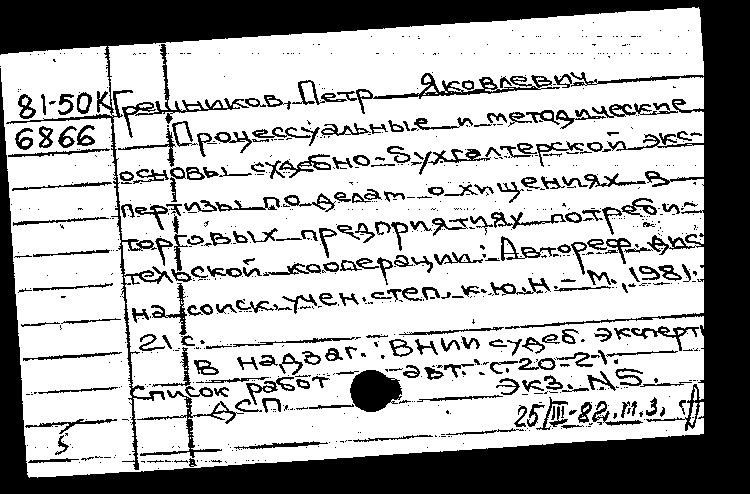 81-50К Грешников, Петр Яковлевич.
6866 Процессуальные и методические
основы судебно-бухгалтерской экс-
пертизы по делам о хищениях в
торговых предприятиях потреби-
тельской кооперации: Автореф. дис
на соиск. учен. степ. к.ю.н. - М., 1981. -
21 с.
В надзаг.: ВНИИ судеб. эксперти
Список работ авт.: с. 20-21.
ДСП. Экз. N5.
5 25/III-82. м.з.